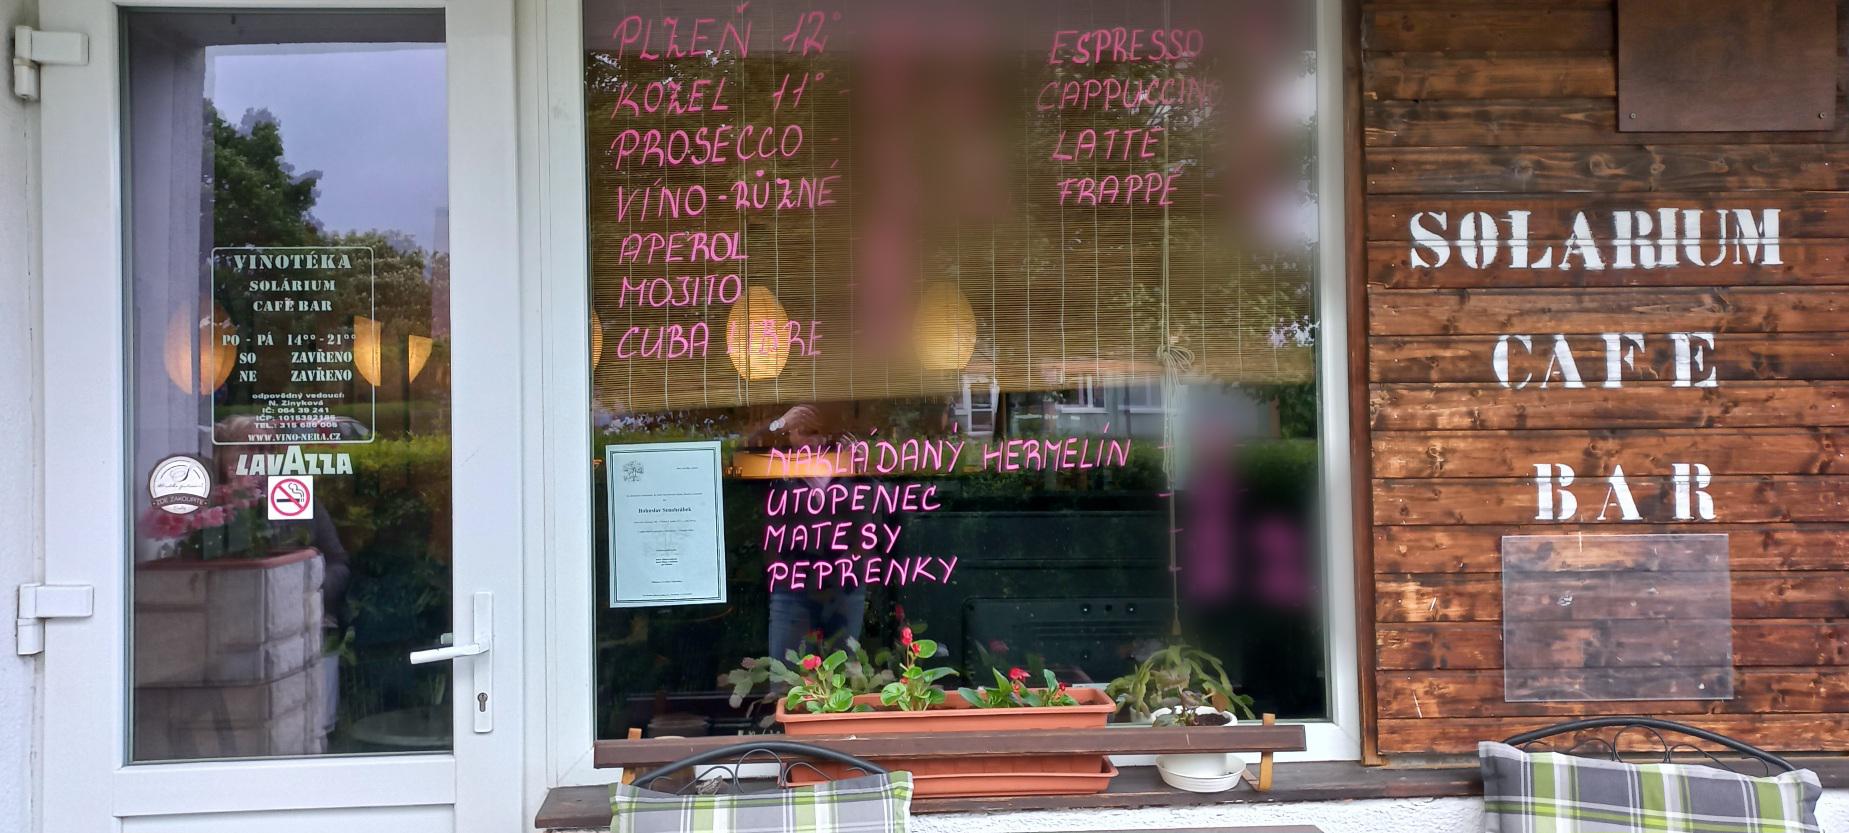 VINOTÉKA
SOLÁRIUM
CAFÉ BAR
PO - PÁ 14°° - 21°°
SO ZAVŘENO
NE ZAVŘENO
odpovědný vedoucí:
N. Zinyková
IČ: 064 39 241
IČP: 1015382186
TEL.: 315 686 006
WWW.VINO-NERA.CZ
LAVAZZA
ZDE ZAKOUPÍTE
PLZEŇ 12°
KOZEL 11° -
PROSECCO -
VÍNO - RŮZNÉ
APEROL
MOJITO
CUBA LIBRE
ESPRESSO
CAPPUCCINO
LATTE
FRAPPÉ
NAKLÁDANÝ HERMELÍN -
UTOPENEC -
MATESY -
PEPŘENKY -
Bohuslav
SOLARIUM
CAFE
BAR